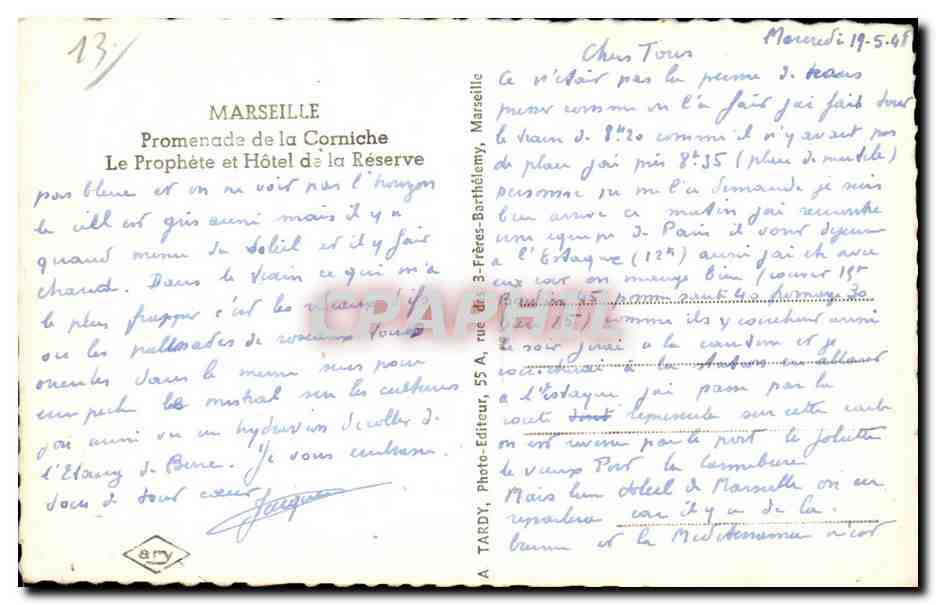 13.
MARSEILLE
Promenade de la Corniche
Le Prophète et Hôtel de la Réserve
A TARDY, Photo-Editeur, 55 A, rue des 3-Frères-Barthélemy, Marseille
Mercredi 19-5-48
Chers Tous
Ce n'était pas la peine de
presser comme on l'a fait j'ai
le train de 8h20 comme il n'y avait pas
de place j'ai pris 8h35 (place de
personne ne me l'a demandé je suis
bien arrivé ce matin j'ai rencontré
une équipe de Paris il vont déjeuner
à l'Estaque (12h) aussi j'ai été avec
eux car on mange bien
40 fromage 30
comme ils y couchent aussi
le soir j'irai à la et je
coucherai à la
à l'Estaque j'ai passé par la
route représentée sur cette carte
on est revenu par le port la Joliette
le vieux Port la Cannebière
Mais le soleil de Marseille on en
reparlera car il y a de la
brume et la Méditerranée n'est
pas bleue et on ne voit pas l'horizon
la ville est gris aussi mais il y a
quand même du soleil et il y fait
chaud. Dans le train ce qui m'a
le plus frappé c'est les
ou les palissades de roseaux toutes
orientées dans le même sens pour
empêcher le mistral sur les cultures
j'ai aussi vu un hydravion décoller de
l'Etang de Berre. Je vous embrasse
tous de tout cœur
Jacques
CPAPHIL
ary